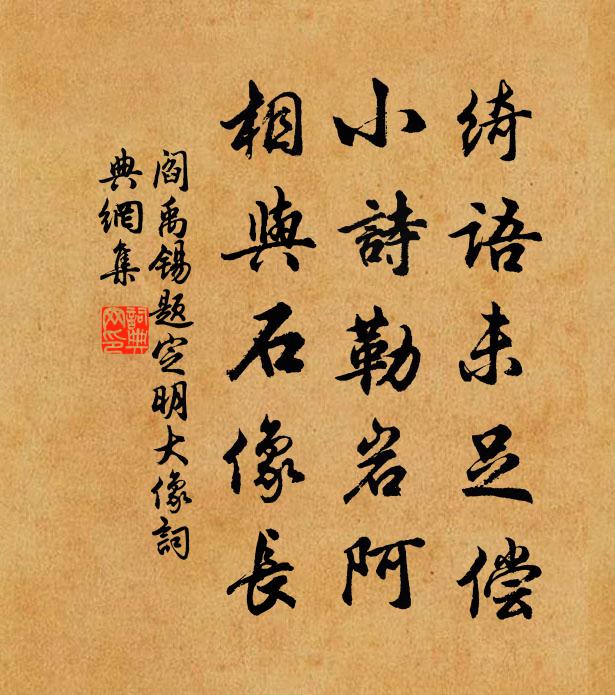 绮語未足偿
小詩勒岩阿
相與石像長
阎禹锡题定明大像詞
典網集
詞典网印